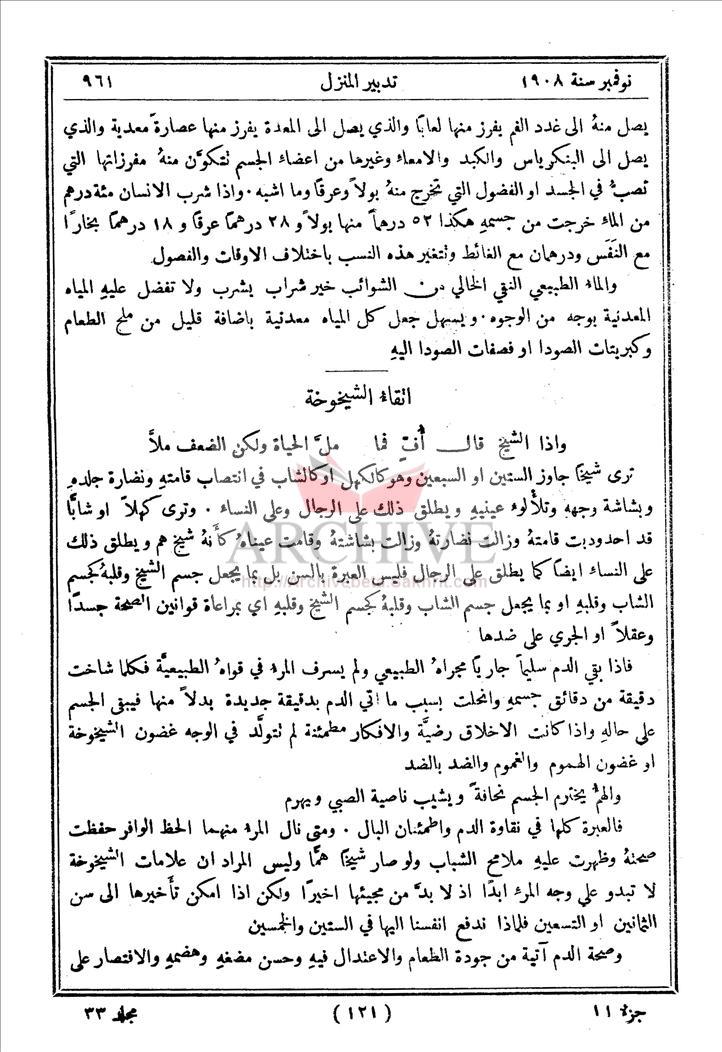 نوفمبر سنة ١٩٠٨ تدبير المنزل ٩٦١
يصل منهُ الى غدد الفم يفرز منها لعابًا والذي يصل الى المعدة يفرز منها عصارةً معدية والذي
يصل الى البنكرياس والكبد والامعاء وغيرها من اعضاء الجسم تتكوَّن منهُ مفرزاتها التي
تصبُّ في الجسد او الفضول التي تخرج منهُ بولاً وعرقًا وما اشبه. واذا شرب الانسان مئة درهم
من الماء خرجت من جسمهِ هكذا ٥٢ درهماً منها بولاً و ٢٨ درهمًا عرقًا و ١٨ درهمًا بخارًا
مع النَفَس ودرهمان مع الغائط وتتغير هذه النسب باختلاف الاوقات والفصول
والماء الطبيعي النقي الخالي من الشوائب خير شراب يشرب ولا تفضل عليهِ المياه
المعدنية بوجه من الوجوه. ويسهل جعل كل المياه معدنية باضافة قليل من ملح الطعام
وكبريتات الصودا او فصفات الصودا اليهِ
اتقاء الشيخوخة
واذا الشيخ قال أُفٍّ فما ملَّ الحياة ولكن الضعف ملاَّ
ترى شيخًا جاوز الستين او السبعين وهو كالكهل او كالشاب في انتصاب قامتهِ ونضارة جلدهِ
وبشاشة وجههِ وتلألوء عينيهِ ويطلق ذلك على الرجال وعلى النساء. وترى كهلاً او شابًّا
قد احدودبت قامتهُ وزالت نضارتهُ وزالت بشاشتهُ وقامت عيناهُ كأنهُ شيخ هم ويطلق ذلك
على النساء ايضًا كما يطلق على الرجال فليس العبرة بالسن بل بما يجعل جسم الشيخ وقلبهُ كجسم
الشاب وقلبهِ او بما يجعل جسم الشاب وقلبهُ كجسم الشيخ وقلبهِ اي بمراعاة قوانين الصحة جسدًا
وعقلاً او الجري على ضدها
فاذا بقي الدم سليماً جاريًا مجراهُ الطبيعي ولم يسرف المرء في قواهُ الطبيعيَّة فكلما شاخت
دقيقة من دقائق جسمهِ وانحلت بسبب ما اتي الدم بدقيقة جديدة بدلاً منها فيبقى الجسم
على حالهِ واذا كانت الاخلاق رضيَّة والافكار مطمئنة لم تتولَّد في الوجه غضون الشيخوخة
او غضون الهموم والغموم والضد بالضد
والهمُّ يخترم الجسم نحافةً ويشيب ناصية الصبي ويهرم
فالعبرة كلها في نقاوة الدم واطمئنان البال. ومتى نال المرء منهما الحظ الوافر حفظت
صحتهُ وظهرت عليهِ ملامح الشباب ولو صار شيخًا همًّا وليس المراد ان علامات الشيخوخة
لا تبدو على وجه المرء ابدًا اذ لا بدَّ من مجيئها اخيرًا ولكن اذا امكن تأخيرها الى سن
الثمانين او التسعين فلماذا ندفع انفسنا اليها في الستين والخمسين
وصحة الدم آتية من جودة الطعام والاعتدال فيهِ وحسن مضغهِ وهضمهِ والاقتصار على
جزء ١١ (١٢١) مجلد ٣٣
ARCHIVE